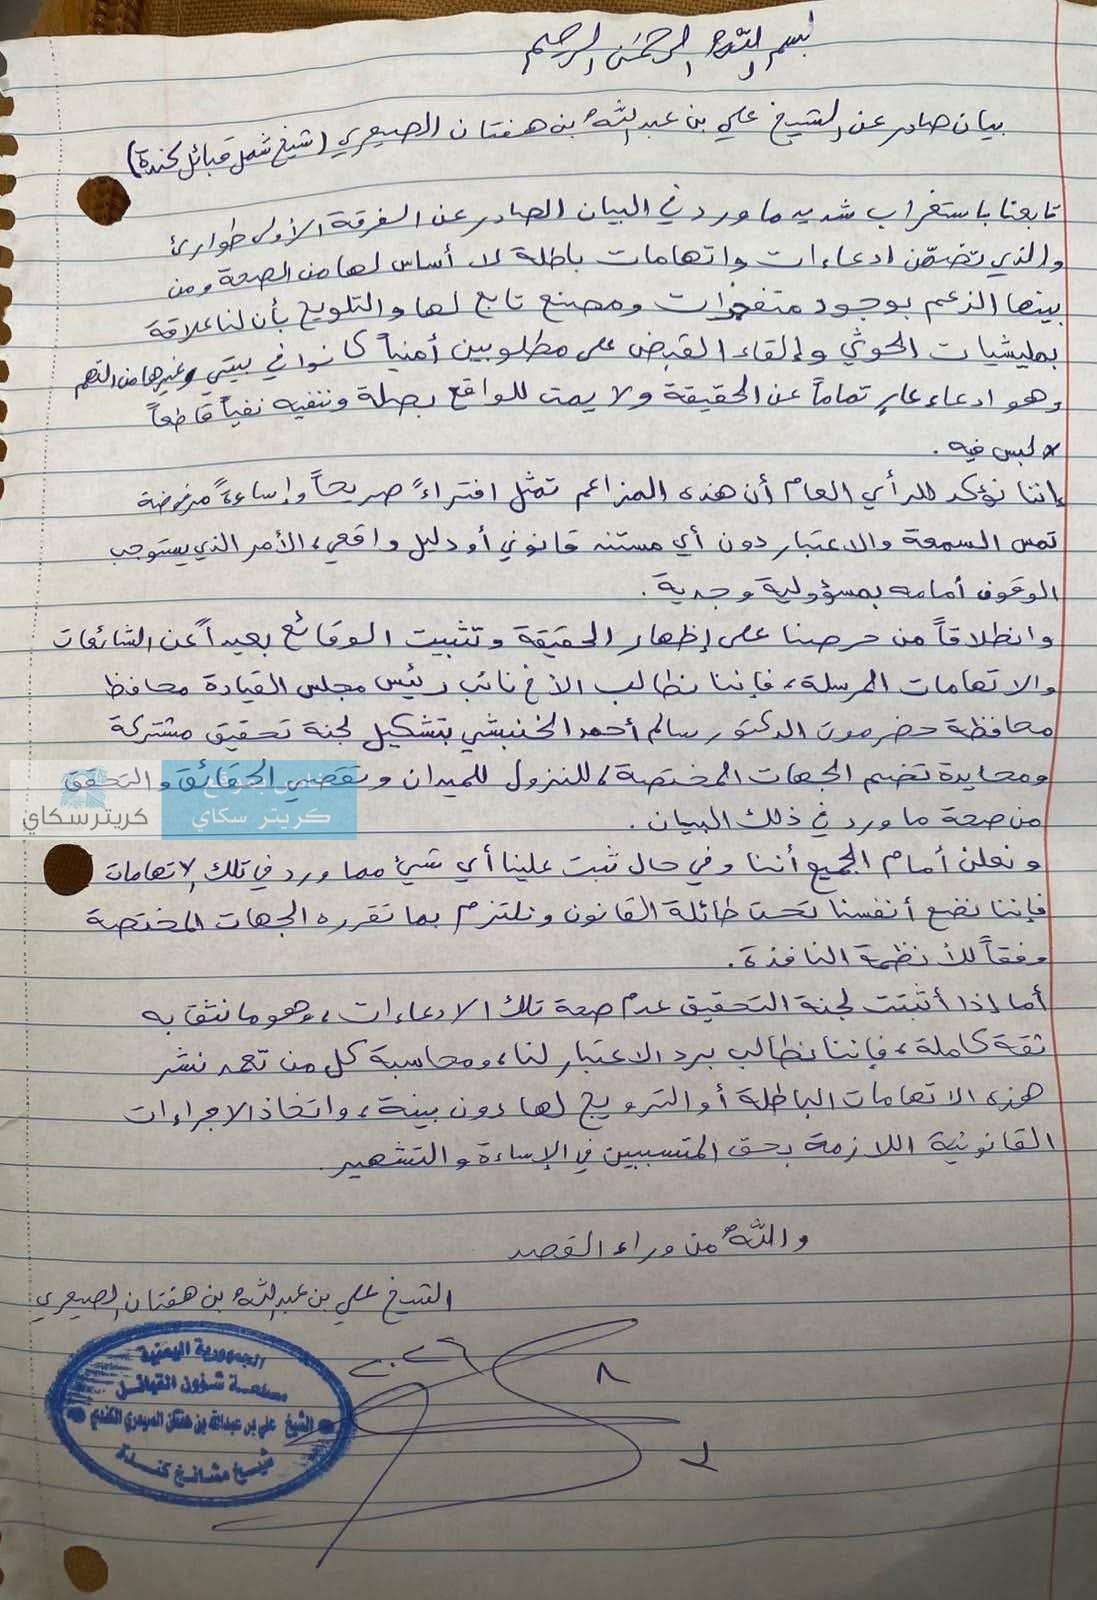 بسم الله الرحمن الرحيم
بيان صادر عن الشيخ علي بن عبدالله بن هفتان الصيعري (شيخ شمل قبائل كندة)
تابعنا باستغراب شديد ما ورد في البيان الصادر عن الفرقة الأولى طوارئ
والذي تضمّن ادعاءات واتهامات باطلة لا أساس لها من الصحة ومن
بينها الزعم بوجود متفجرات ومصنع تابع لها والتلويح بأن لنا علاقة
بمليشيات الحوثي وإلقاء القبض على مطلوبين أمنياً كانوا في بيتي وغيرها من التهم
وهو ادعاء عارٍ تماماً عن الحقيقة ولا يمت للواقع بصلة وننفيه نفياً قاطعاً
لا لبس فيه .
إننا نؤكد للرأي العام أن هذه المزاعم تمثل افتراءً صريحاً وإساءةً مرفوضة
تمس السمعة والاعتبار دون أي مستند قانوني أو دليل واقعي، الأمر الذي يستوجب
الوقوف أمامه بمسؤولية وجدية .
وانطلاقاً من حرصنا على إظهار الحقيقة وتثبيت الوقائع بعيداً عن الشائعات
والاتهامات المرسلة، فإننا نطالب الأخ نائب رئيس مجلس القيادة محافظ
محافظة حضرموت الدكتور سالم أحمد الخنبشي بتشكيل لجنة تحقيق مشتركة
ومحايدة تضم الجهات المختصة، للنزول للميدان وتقصي الحقائق والتحقق
من صحة ما ورد في ذلك البيان .
كريتر سكاي
كريترسكاي
ونعلن أمام الجميع أننا وفي حال ثبت علينا أي شيء مما ورد في تلك الاتهامات
فإننا نضع أنفسنا تحت طائلة القانون ونلتزم بما تقرره الجهات المختصة
وفقاً للأنظمة النافذة .
أما إذا أثبتت لجنة التحقيق عدم صحة تلك الادعاءات، وهو ما نثق به
ثقة كاملة، فإننا نطالب برد الاعتبار لنا، ومحاسبة كل من تعمد نشر
هذه الاتهامات الباطلة أو الترويج لها دون بينة، واتخاذ الإجراءات
القانونية اللازمة بحق المتسببين في الإساءة والتشهير .
والله من وراء القصد
الشيخ علي بن عبدالله بن هفتان الصيعري
٨
٢
٢٠٢٦
الجمهورية اليمنية
مصلحة شؤون القبائل
الشيخ علي بن عبدالله بن هفتان الصيعري الكندي
شيخ مشائخ كندة